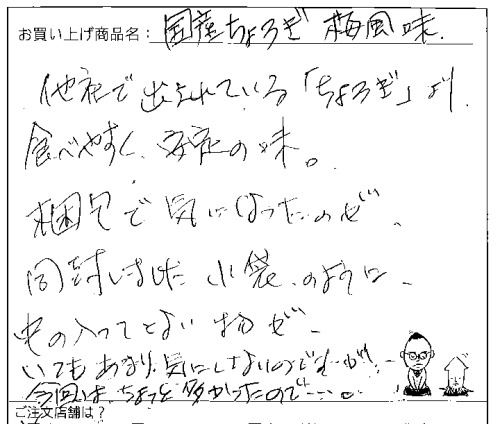 お買い上げ商品名：国産ちょろぎ 梅風味.
他社で出されている「ちょろぎ」より.
食べやすく、安定の味。
梱包で気になったのが、
同封しました小袋、のように、
中の入ってない物が、
いてもあまり気にしないのですが、
今回は、ちょっと多かったので…。
ご注文店舗は？